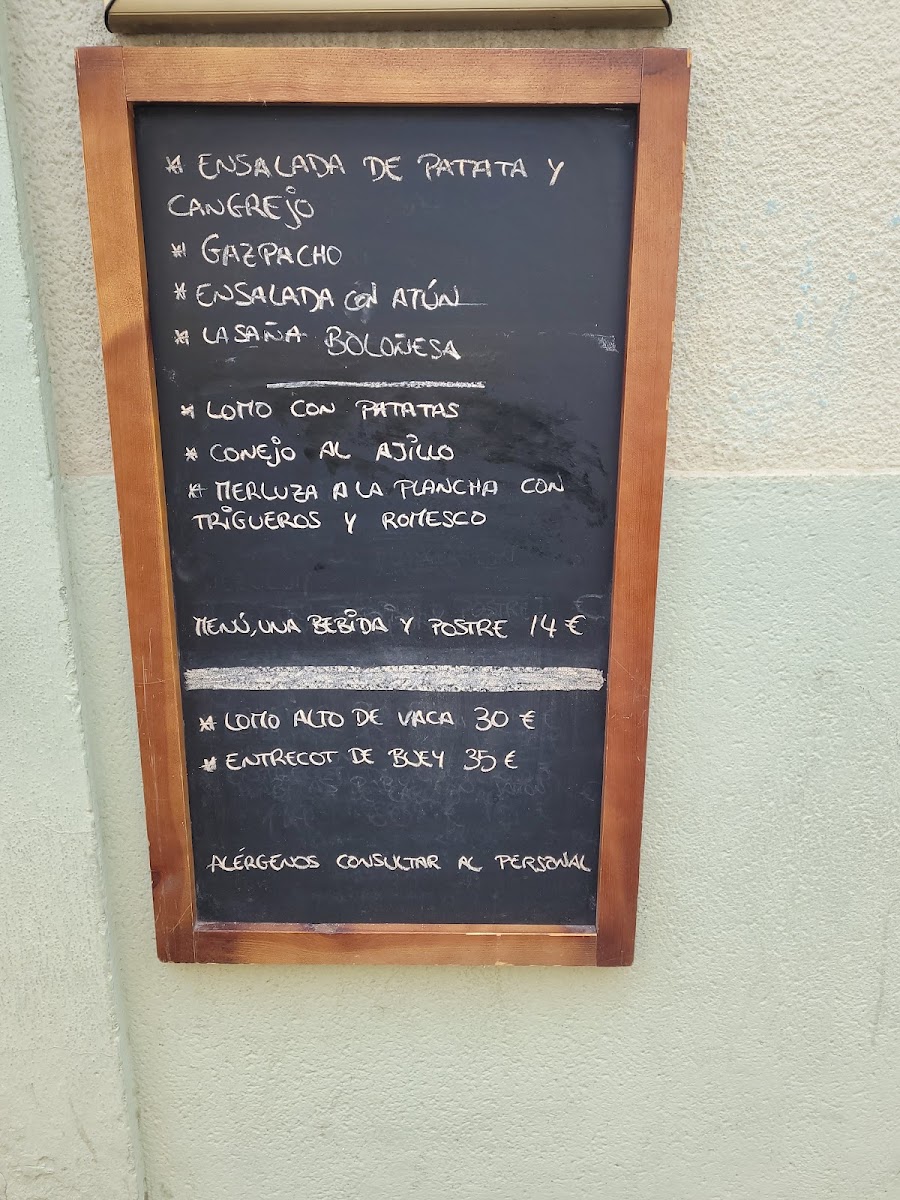 * ENSALADA DE PATATA Y
CANGREJO
* GAZPACHO
* ENSALADA CON ATÚN
* LASAÑA BOLOÑESA
* LOMO CON PATATAS
* CONEJO AL AJILLO
* MERLUZA A LA PLANCHA CON
TRIGUEROS Y ROMESCO
MENÚ, UNA BEBIDA Y POSTRE 14 €
* LOMO ALTO DE VACA 30 €
* ENTRECOT DE BUEY 35 €
ALÉRGENOS CONSULTAR AL PERSONAL